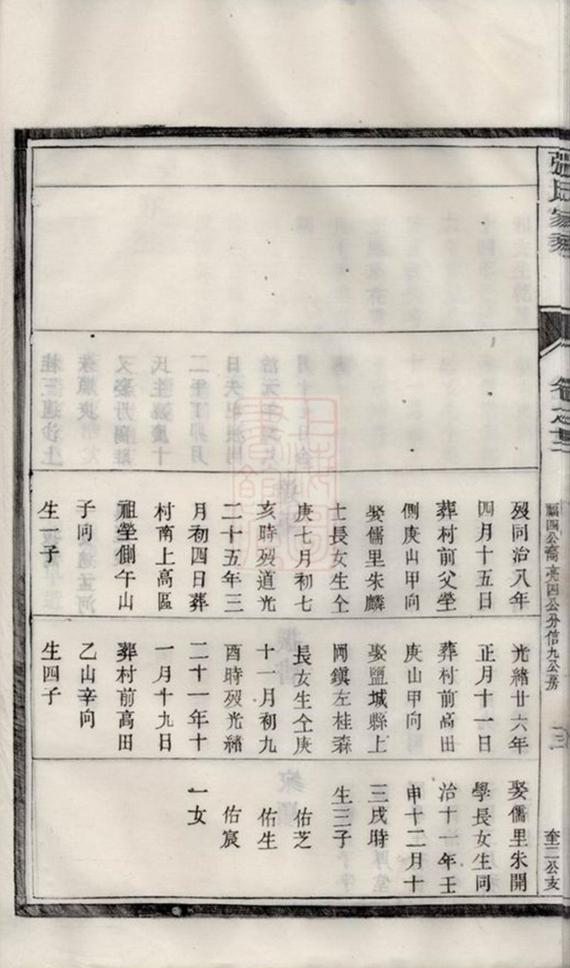 張氏家乘
卷之三
福四公喬亮四公分信九公房
三
奎二公支
歿同治八年
四月十五日
葬村前父塋
側庚山甲向
娶儒里朱麟
士長女生仝
庚七月初七
亥時歿道光
二十五年三
月初四日葬
村南上高區
祖塋側午山
子向
生一子
光緒廿六年
正月十一日
葬村前高田
庚山甲向
娶鹽城縣上
岡鎮左桂森
長女生仝庚
十一月初九
酉時歿光緒
二十一年十
一月十九日
葬村前高田
乙山辛向
生四子
娶儒里朱開
學長女生同
治十一年壬
申十二月十
三戌時
生三子
佑芝
佑生
佑宸
一女